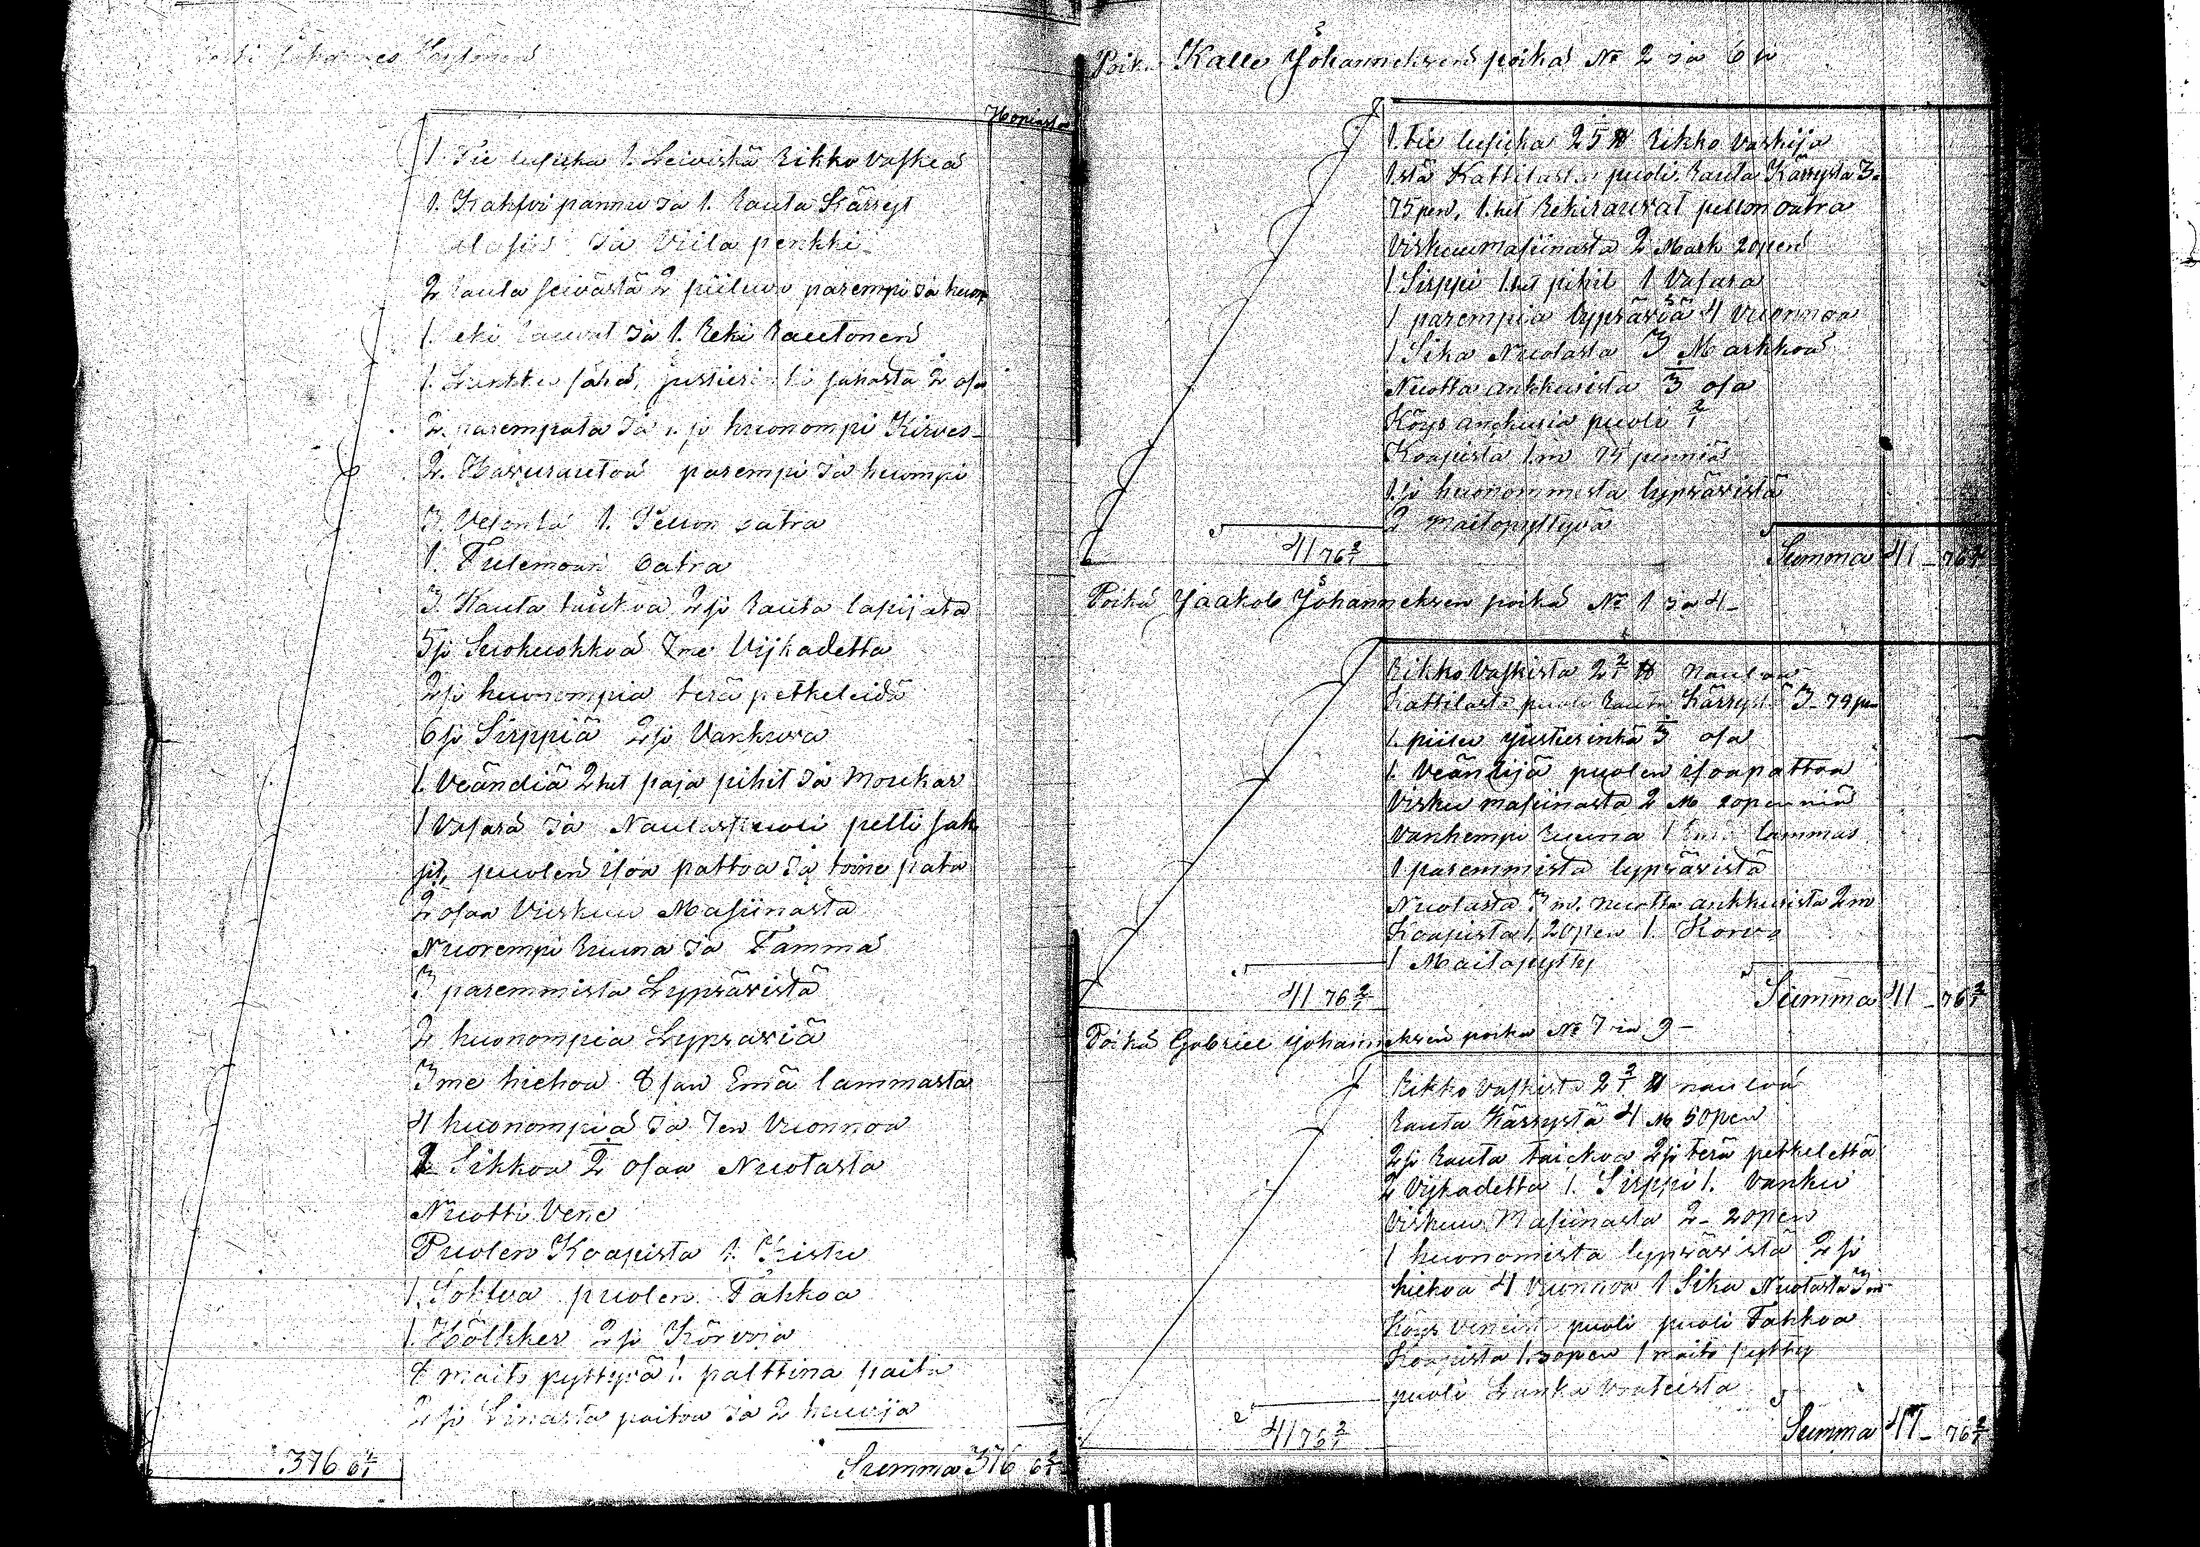 Johannes
Hopiasta
1. Tie lusikka 1. Leiviskä Rikko vaskea
1. Kahfvi pannu ja 1. Rauta Kärryt
Alasin ja Viila penkki
2 Rauta seivästä 2 piiluva parempi ja huon
1. Reki Rauvat ja 1. Reki Rautonen
1. Lankku saha, justieri
2. parempata ja 1. ji huonompi Kirves
2. Havurautoa parempi ja huompi
3. 1. Pellon oatra
1. Tulemoan oatra
3. Rauta 2 ji Rauta lapijata
5 ji Luokuohkoa 7me Vijkadetta
2 ji huonompia terä petkeleidä
6 ji Sirppiä 2 ji Vankuva
1. Veändiä 2 het paja pihit ja Moukar
1 Vasara ja pelti sak
jit, puolen isoa pattoa ja toine pata
2 osaa Viskuu Masiinasta
Nuorempi Ruuna ja Tamma
3 paremmista Lypsävistä
2 huonompia Lypsäviä
3me hiehoa 8 san Emä lammasta
4 huonompia ja 7en Vuonnoa
2 Sikkoa 2 osaa Nuotasta
Nuotti Vene
Puolen Koapista 1. Kistu
1. Sohva puolen Tahkoa
1. Hölkker 2 ji Korvoja
8 maito pyttyvä 1. palttina paita
2 ji Linasta paitoa ja 2 huovja
376 6 2/1
Summa 376 6 2/1
Poika Kalle Johanneksen poika No 2 ja 6
1. tie lusikka 25 ℔ Rikko Vaskija
1stä Kattilasta puoli Rauta Kärrystä 3-
75 pen, 1.het Rekirauvat pellon oatra
Viskuumasiinasta 2 Mark 20 pen
1 Sirppi 1.het pihit 1 Vasara
1 parempia lypsäviä 4 Vuonnoa
1 Sika Nuotasta 3 Markkoa
Nuotta ankkurista 3 osa
Köys ankkuria puoli 2/1
Koapista 1.m 75 penniä
1 ji huonommista lypsävistä
2 maitopyttyvä
41 76 2/1
Summa 41 - 76 2/1
Poika Jaakob Johanneksen poika No 1 ja 4-
Rikko Vaskista 2 2/1 ℔ naulaa
Kattilasta puoli Rauta Kärrystä 3- 79 pen
1. piilu justierinkä 3 osa
1. Veäntijä puolen isoapattoa
Visku masiinasta 2 M 20 penniä
Vanhempi Ruuna 1 lammas
1 paremmista lypsävistä
Nuotasta 3 m. nuotta ankkurista 2 m
Koapista 1, 20 pen 1. Korvo
1 Maitopytty
41 76 2/1
Summa 41 - 76 2/1
Poika Gabriel Johanneksen poika No 7 ja 9-
Rikko Vaskista 2 2/1 ℔ naulaa
Rauta Kärrystä 4 M 50 pen
2 ji Rauta taickoa 2 ji terä petkelettä
2 Vijkadetta 1. Sirppi 1. Vanku
Viskuu Masiinasta 2- 20 pen
1 huonomista lypsävistä 2 ji
hiehoa 4 Vuonnoa 1 Sika Nuotasta 3 m
Köys puoli puoli Tahkoa
Koapista 1.30 pen 1 maito pytty
puoli Lanka Voateista
41 76 2/1
Summa 41 - 76 2/1